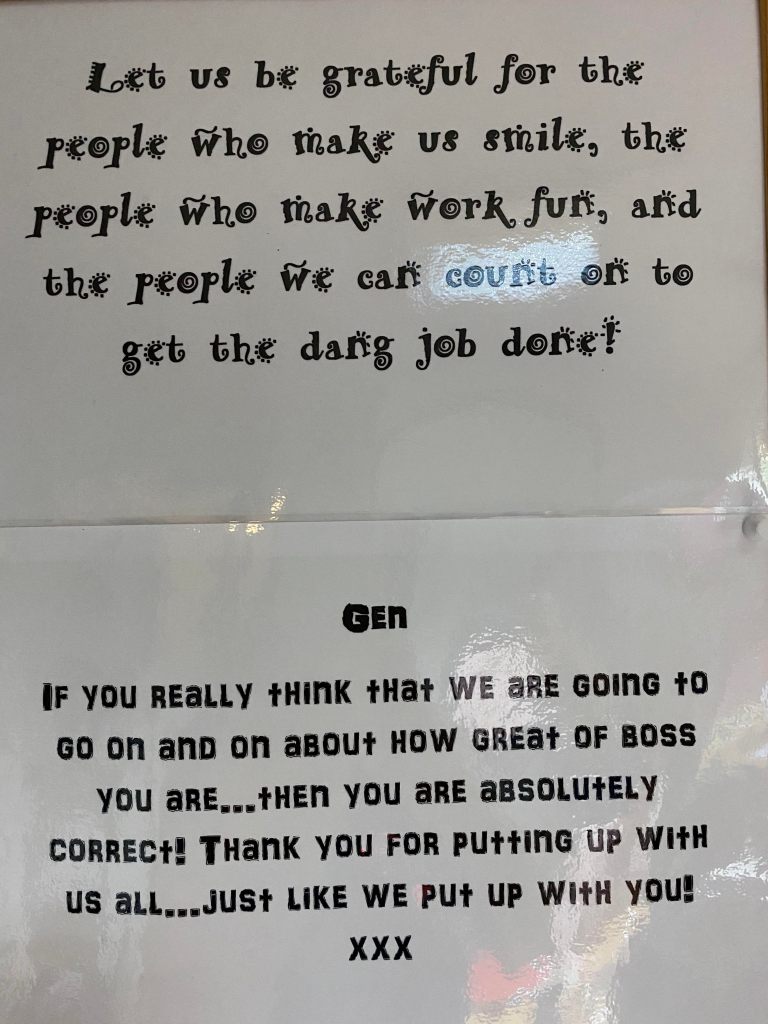 Let us be grateful for the
people who make us smile, the
people who make work fun, and
the people we can count on to
get the dang job done!
Gen
If you really think that we are going to
go on and on about how great of boss
you are...then you are absolutely
correct! Thank you for putting up with
us all...just like we put up with you!
xxx